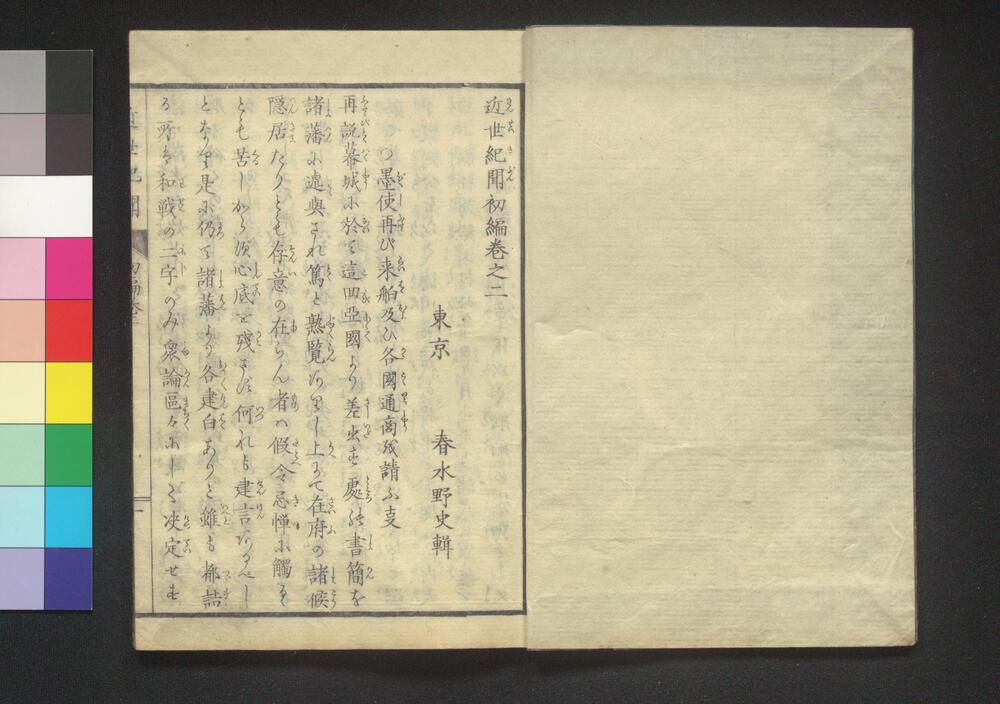 近世紀聞初編巻之二
東京 春水野史輯
○墨使再び来舶及び各國通商を請ふ支
再説幕城に於て這回亞國より差出す處の書簡を
諸藩に逓與され篤と熟覧ありし上にて在府の諸候
隠居たりとも存意の在らん者ハ假令忌憚に觸るゝ
とも苦しからず心底を残さず何れも建言あるべし
となり是に仍て諸藩より各建白ありと雖も都詰
る所は和戦の二字のみ衆論區々にして决定せず
近世紀聞 初編巻二